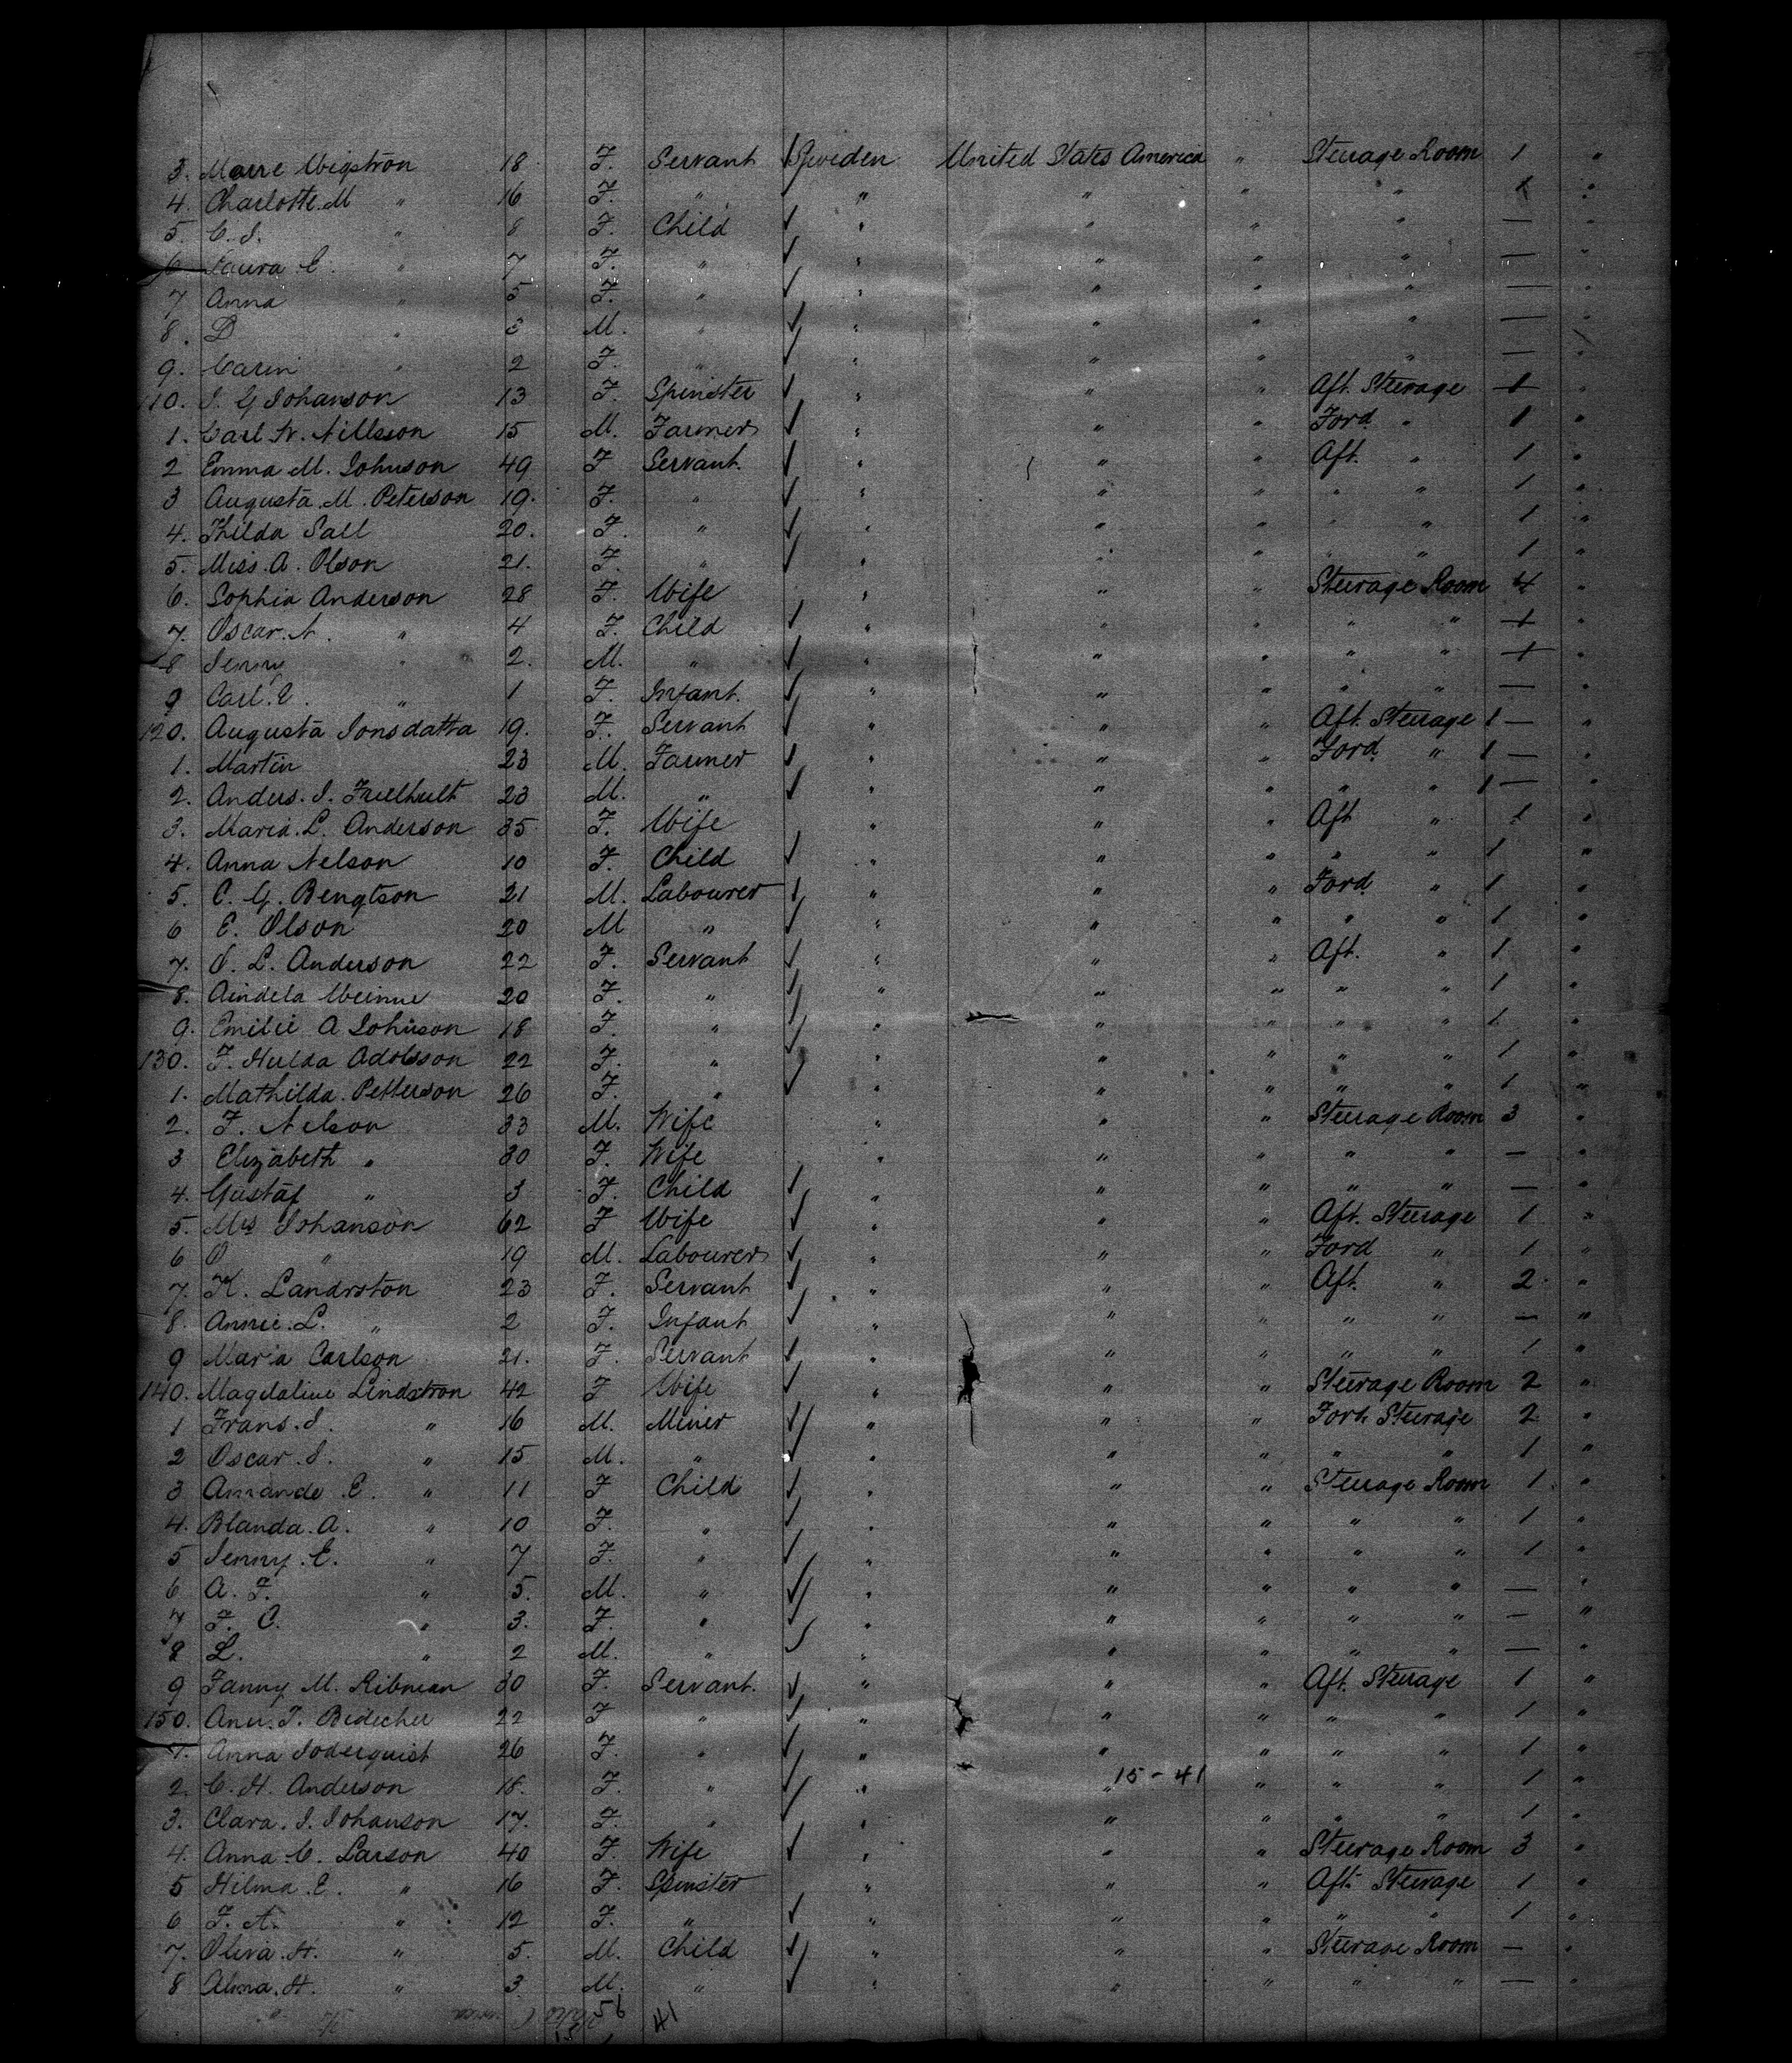 3. Marre Wigström 18 F. Servant Sweden United States America " Steerage Room 1 "
4. Charlotte M " 16 F. " " " " " 1 "
5. C. J. " 8 F. Child " " " " — "
6 Laura C. " 7 F. " " " " " — "
7 Anna " 5 F. " " " " " — "
8. D " 3 M. " " " " " — "
9. Carin " 2 F. " " " " " — "
110. J. G Johanson 13 F. Spinster " " " Aft. Steerage 1 "
1. Carl N. Nillsson 15 M. Farmer " " " Ford. " 1 "
2 Emma M. Johnson 49 F Servant. " " " Aft. " 1 "
3 Augusta M. Peterson 19. F. " " " " " " 1 "
4. Thilda Sall 20. F. " " " " " " 1 "
5. Miss. A. Olson 21. F. " " " " " " 1 "
6. Sophia Anderson 28 F. Wife " " " Steerage Room 4 "
7. Oscar. A. " 4 F. Child " " " " " 1 "
8 Jenny " 2. M. " " " " " " 1 "
9 Carl. E. " 1 F. Infant. " " " " " — "
120. Augusta Jonsdatta 19. F. Servant " " " Aft. Steerage 1 — "
1. Martin 23 M. Farmer " " " Ford. " 1 — "
2. Anders. J. Frielhult 23 M. " " " " " " 1 — "
3. Maria. L. Anderson 35 F. Wife " " " Aft " 1 "
4. Anna Nelson 10 F. Child " " " " " 1 "
5. C. G. Bengtson 21 M. Labourer " " " Ford. " 1 "
6 E. Olson 20 M " " " " " " 1 "
7. O. L. Anderson 22 F. Servant " " " Aft. " 1 "
8. 20 F. " " " " " " 1 "
9. Emilie A Johnson 18 F. " " " " " " 1 "
130. F. Hulda Adolsson 22 F. " " " " " " 1 "
1. Mathilda. Petterson 26 F. " " " " " " 1 "
2. F. Nelson 33 M. Wife " " " Steerage Room 3 "
3 Elizabeth " 30 F. Wife " " " " " — "
4. Gustaf " 3 F. Child " " " " " — "
5. Mrs Johanson 62 F Wife " " " Aft. Steerage 1 "
6 O " 19 M. Labourer " " " Ford " 1 "
7. K. Landrston 23 F. Servant " " " Aft. " 2 "
8. Annie. L. " 2 F. Infant " " " " " — "
9 Maria Carlson 21. F. Servant " " " " " 1 "
140. Magdaline Lindstron 42 F Wife " " " Steerage Room 2 "
1 Frans. J. " 16 M. Miner " " " Ford. Steerage 2 "
2 Oscar. J. " 15 M. " " " " " " 1 "
3 Amande E. " 11 F Child " " " Steerage Room 1 "
4. Blanda. A. " 10 F. " " " " " " 1 "
5 Jenny. E. " 7 F. " " " " " " 1 "
6 A. F. " 5. M. " " " " " " — "
7 F. C. " 3. F. " " " " " " — "
8 L. " 2 M. " " " " " " — "
9 Fanny M. Ribman 30 F. Servant. " " " Aft. Steerage 1 "
150. Ann. T. Bedecher 22 F " " " " " " 1 "
1. Anna Soderquist 26 F. " " " " " " 1 "
2. C. H. Anderson 18. F. " " " 15 - 41 " " " 1 "
3. Clara. J. Johanson 17. F. " " " " " " 1 "
4. Anna. C. Larson 40 F. Wife " " " Steerage Room 3 "
5 Hilma. E. " 16 F. Spinster " " " Aft. Steerage 1 "
6 F. A. " 12 F. " " " " " " 1 "
7. Oliva. H. " 5. M. Child " " " Steerage Room — "
8 Alma. H. " 3 M. " " " " " " — "
56 41